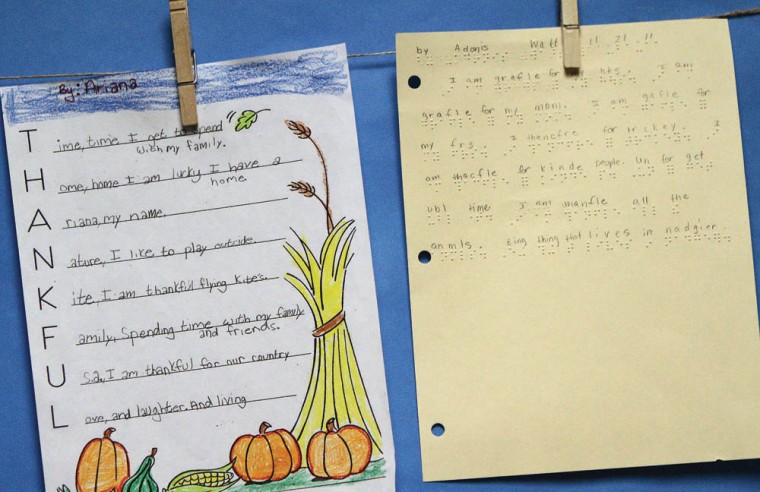 By: Ariana
T ime, time I get to spend
with my family.
H ome, home I am lucky I have a
home.
A riana, my name.
N ature, I like to play outside.
K ite, I am thankful flying kites.
F amily, Spending time with my family
and friends.
U sa, I am thankful for our country
L ove, and laughter. And living
by Adonis Watt 11. 21. 11
I am grafle for my hts. I am
grafle for my mom. I am gafle for
my frs. I thencfre for trckey. I
am thacfle for kinde people. un for get
ubl time I am thanfle all the
anmls. Eing thing that lives in nadgier.